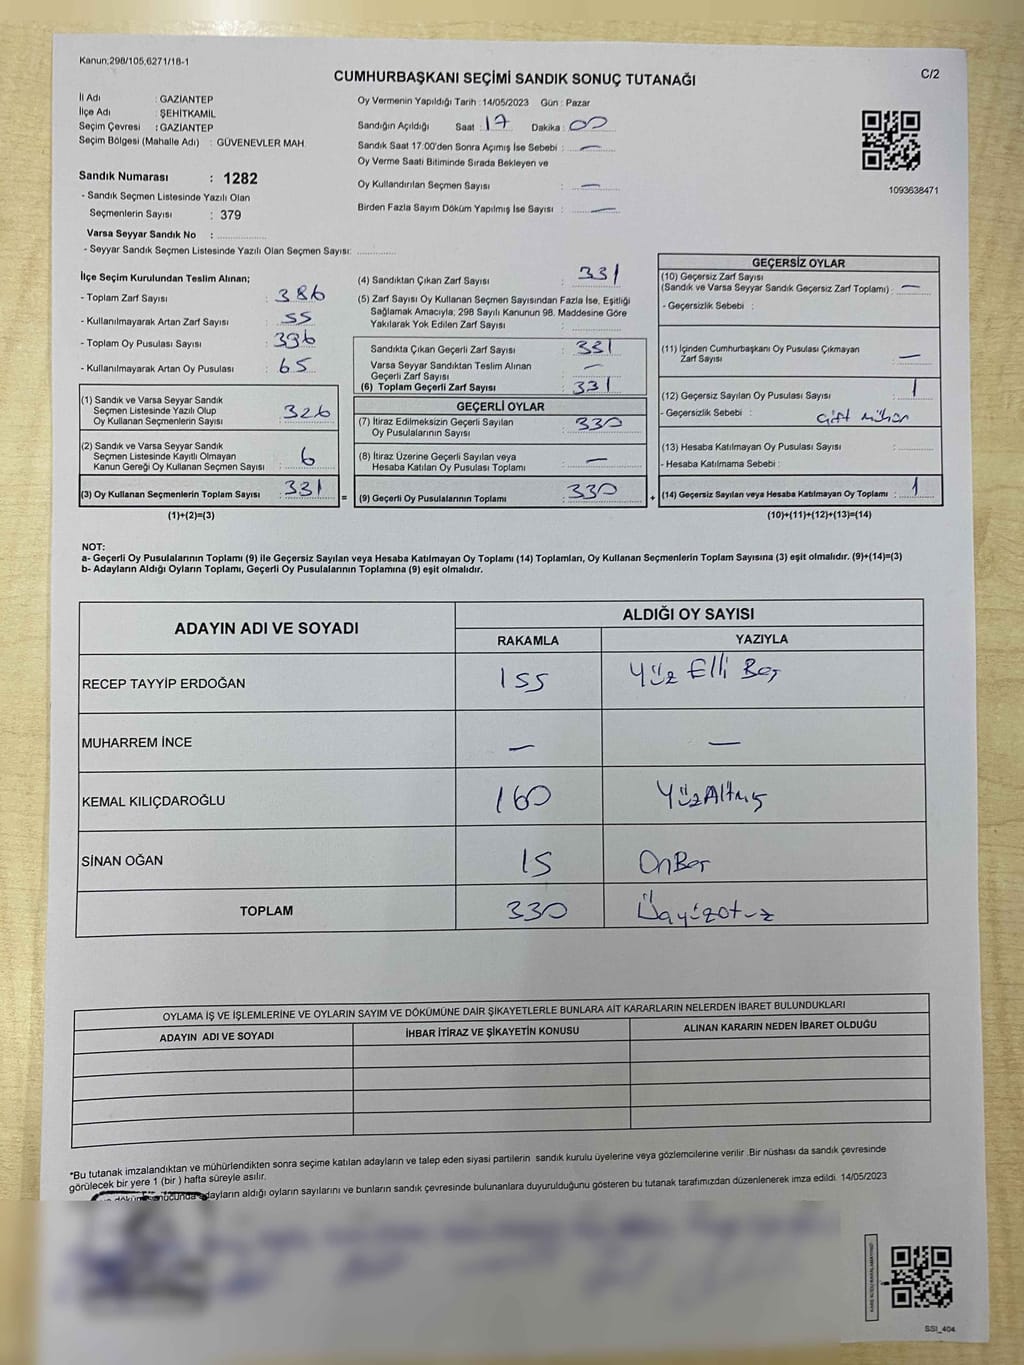 Kanun,298/105,6271/18-1
CUMHURBAŞKANI SEÇİMİ SANDIK SONUÇ TUTANAĞI
C/2
İl Adı : GAZİANTEP
İlçe Adı : ŞEHİTKAMİL
Seçim Çevresi : GAZİANTEP
Seçim Bölgesi (Mahalle Adı) : GÜVENEVLER MAH.
Sandık Numarası : 1282
- Sandık Seçmen Listesinde Yazılı Olan
Seçmenlerin Sayısı : 379
Varsa Seyyar Sandık No :
- Seyyar Sandık Seçmen Listesinde Yazılı Olan Seçmen Sayısı:
Oy Vermenin Yapıldığı Tarih : 14/05/2023 Gün : Pazar
Sandığın Açıldığı Saat : 17 Dakika : 00
Sandık Saat 17:00'den Sonra Açımış İse Sebebi : —
Oy Verme Saati Bitiminde Sırada Bekleyen ve
Oy Kullandırılan Seçmen Sayısı : —
Birden Fazla Sayım Döküm Yapılmış İse Sayısı : —
1093638471
İlçe Seçim Kurulundan Teslim Alınan;
- Toplam Zarf Sayısı : 386
- Kullanılmayarak Artan Zarf Sayısı : 55
- Toplam Oy Pusulası Sayısı : 396
- Kullanılmayarak Artan Oy Pusulası : 65
(1) Sandık ve Varsa Seyyar Sandık
Seçmen Listesinde Yazılı Olup
Oy Kullanan Seçmenlerin Sayısı : 326
(2) Sandık ve Varsa Seyyar Sandık
Seçmen Listesinde Kayıtlı Olmayan
Kanun Gereği Oy Kullanan Seçmen Sayısı : 6
(3) Oy Kullanan Seçmenlerin Toplam Sayısı : 331 =
(1)+(2)=(3)
(4) Sandıktan Çıkan Zarf Sayısı : 331
(5) Zarf Sayısı Oy Kullanan Seçmen Sayısından Fazla İse, Eşitliği
Sağlamak Amacıyla; 298 Sayılı Kanunun 98. Maddesine Göre
Yakılarak Yok Edilen Zarf Sayısı :
Sandıkta Çıkan Geçerli Zarf Sayısı : 331
Varsa Seyyar Sandıktan Teslim Alınan
Geçerli Zarf Sayısı : —
(6) Toplam Geçerli Zarf Sayısı : 331
GEÇERLİ OYLAR
(7) İtiraz Edilmeksizin Geçerli Sayılan
Oy Pusulalarının Sayısı : 330
(8) İtiraz Üzerine Geçerli Sayılan veya
Hesaba Katılan Oy Pusulası Toplamı : —
(9) Geçerli Oy Pusulalarının Toplamı : 330 +
GEÇERSİZ OYLAR
(10) Geçersiz Zarf Sayısı
(Sandık ve Varsa Seyyar Sandık Geçersiz Zarf Toplamı) : —
- Geçersizlik Sebebi :
(11) İçinden Cumhurbaşkanı Oy Pusulası Çıkmayan
Zarf Sayısı : —
(12) Geçersiz Sayılan Oy Pusulası Sayısı : 1
- Geçersizlik Sebebi : Çift mühür
(13) Hesaba Katılmayan Oy Pusulası Sayısı :
- Hesaba Katılmama Sebebi :
(14) Geçersiz Sayılan veya Hesaba Katılmayan Oy Toplamı : 1
(10)+(11)+(12)+(13)=(14)
NOT:
a- Geçerli Oy Pusulalarının Toplamı (9) ile Geçersiz Sayılan veya Hesaba Katılmayan Oy Toplamı (14) Toplamları, Oy Kullanan Seçmenlerin Toplam Sayısına (3) eşit olmalıdır. (9)+(14)=(3)
b- Adayların Aldığı Oyların Toplamı, Geçerli Oy Pusulalarının Toplamına (9) eşit olmalıdır.
ADAYIN ADI VE SOYADI
ALDIĞI OY SAYISI
RAKAMLA YAZIYLA
RECEP TAYYİP ERDOĞAN 155 Yüz Elli Beş
MUHARREM İNCE — —
KEMAL KILIÇDAROĞLU 160 YüzAltmış
SİNAN OĞAN 15 OnBeş
TOPLAM 330 Üçyüzotuz
OYLAMA İŞ VE İŞLEMLERİNE VE OYLARIN SAYIM VE DÖKÜMÜNE DAİR ŞİKAYETLERLE BUNLARA AİT KARARLARIN NELERDEN İBARET BULUNDUKLARI
ADAYIN ADI VE SOYADI İHBAR İTİRAZ VE ŞİKAYETİN KONUSU ALINAN KARARIN NEDEN İBARET OLDUĞU
*Bu tutanak imzalandıktan ve mühürlendikten sonra seçime katılan adayların ve talep eden siyasi partilerin sandık kurulu üyelerine veya gözlemcilerine verilir .Bir nüshası da sandık çevresinde
görülecek bir yere 1 (bir ) hafta süreyle asılır.
adayların aldığı oyların sayılarını ve bunların sandık çevresinde bulunanlara duyurulduğunu gösteren bu tutanak tarafımızdan düzenlenerek imza edildi. 14/05/2023
SSI_404